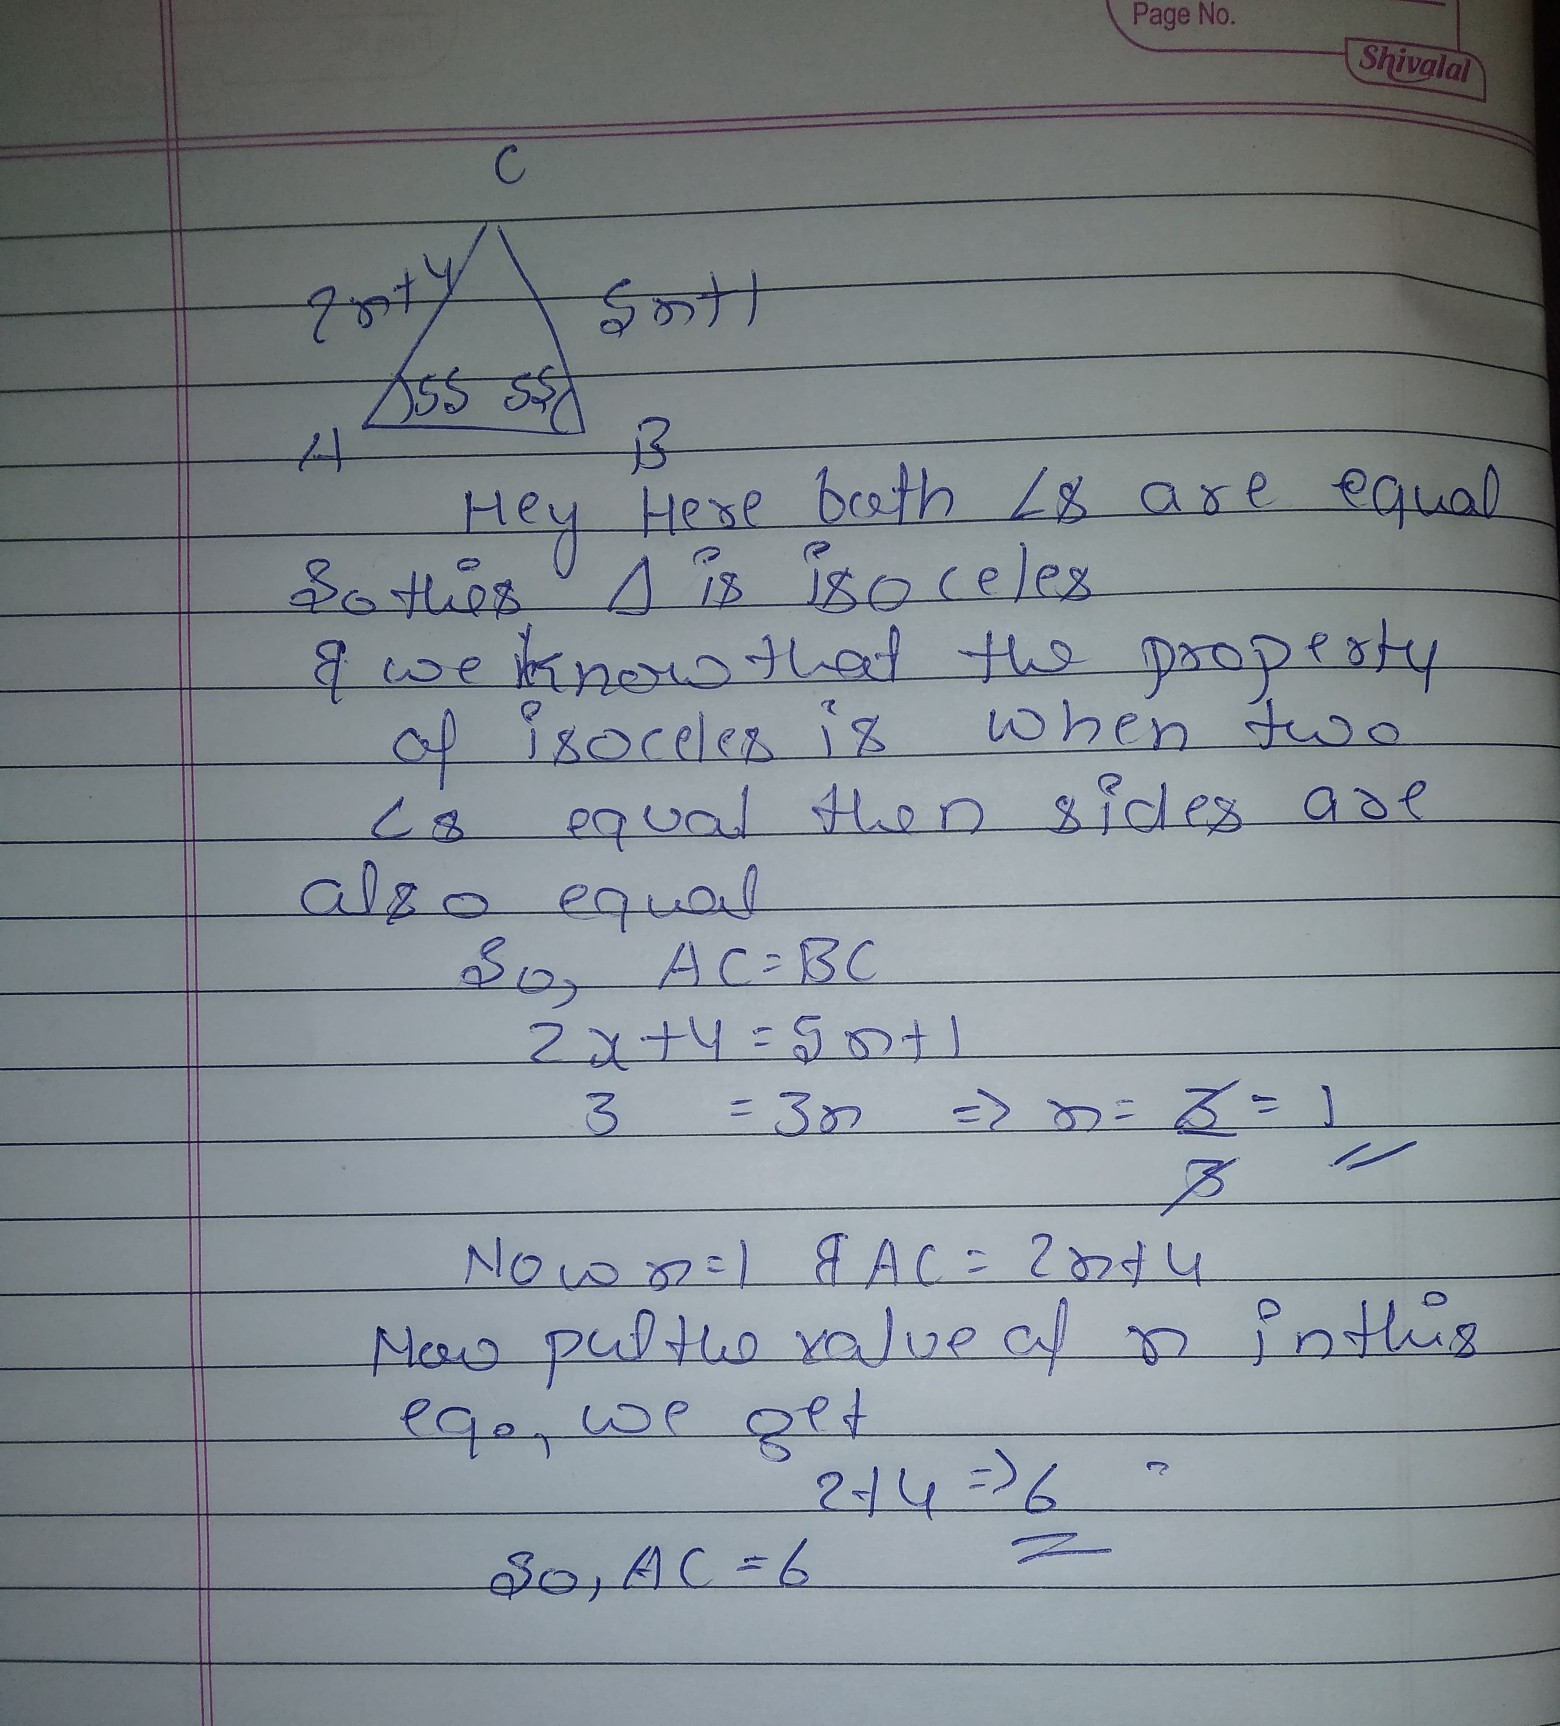 Page No.
Shivalal
C
2x+4
5x+1
55 55
A B
Hey Here both ∠s are equal
So this Δ is isoceles
& we know that the property
of isoceles is when two
∠s equal then sides are
also equal
So, AC=BC
2x+4=5x+1
3 = 3x => x= 3/3 = 1
Now x=1 & AC= 2x+4
Now put the value of x in this
eq., we get
2+4 => 6
So, AC=6